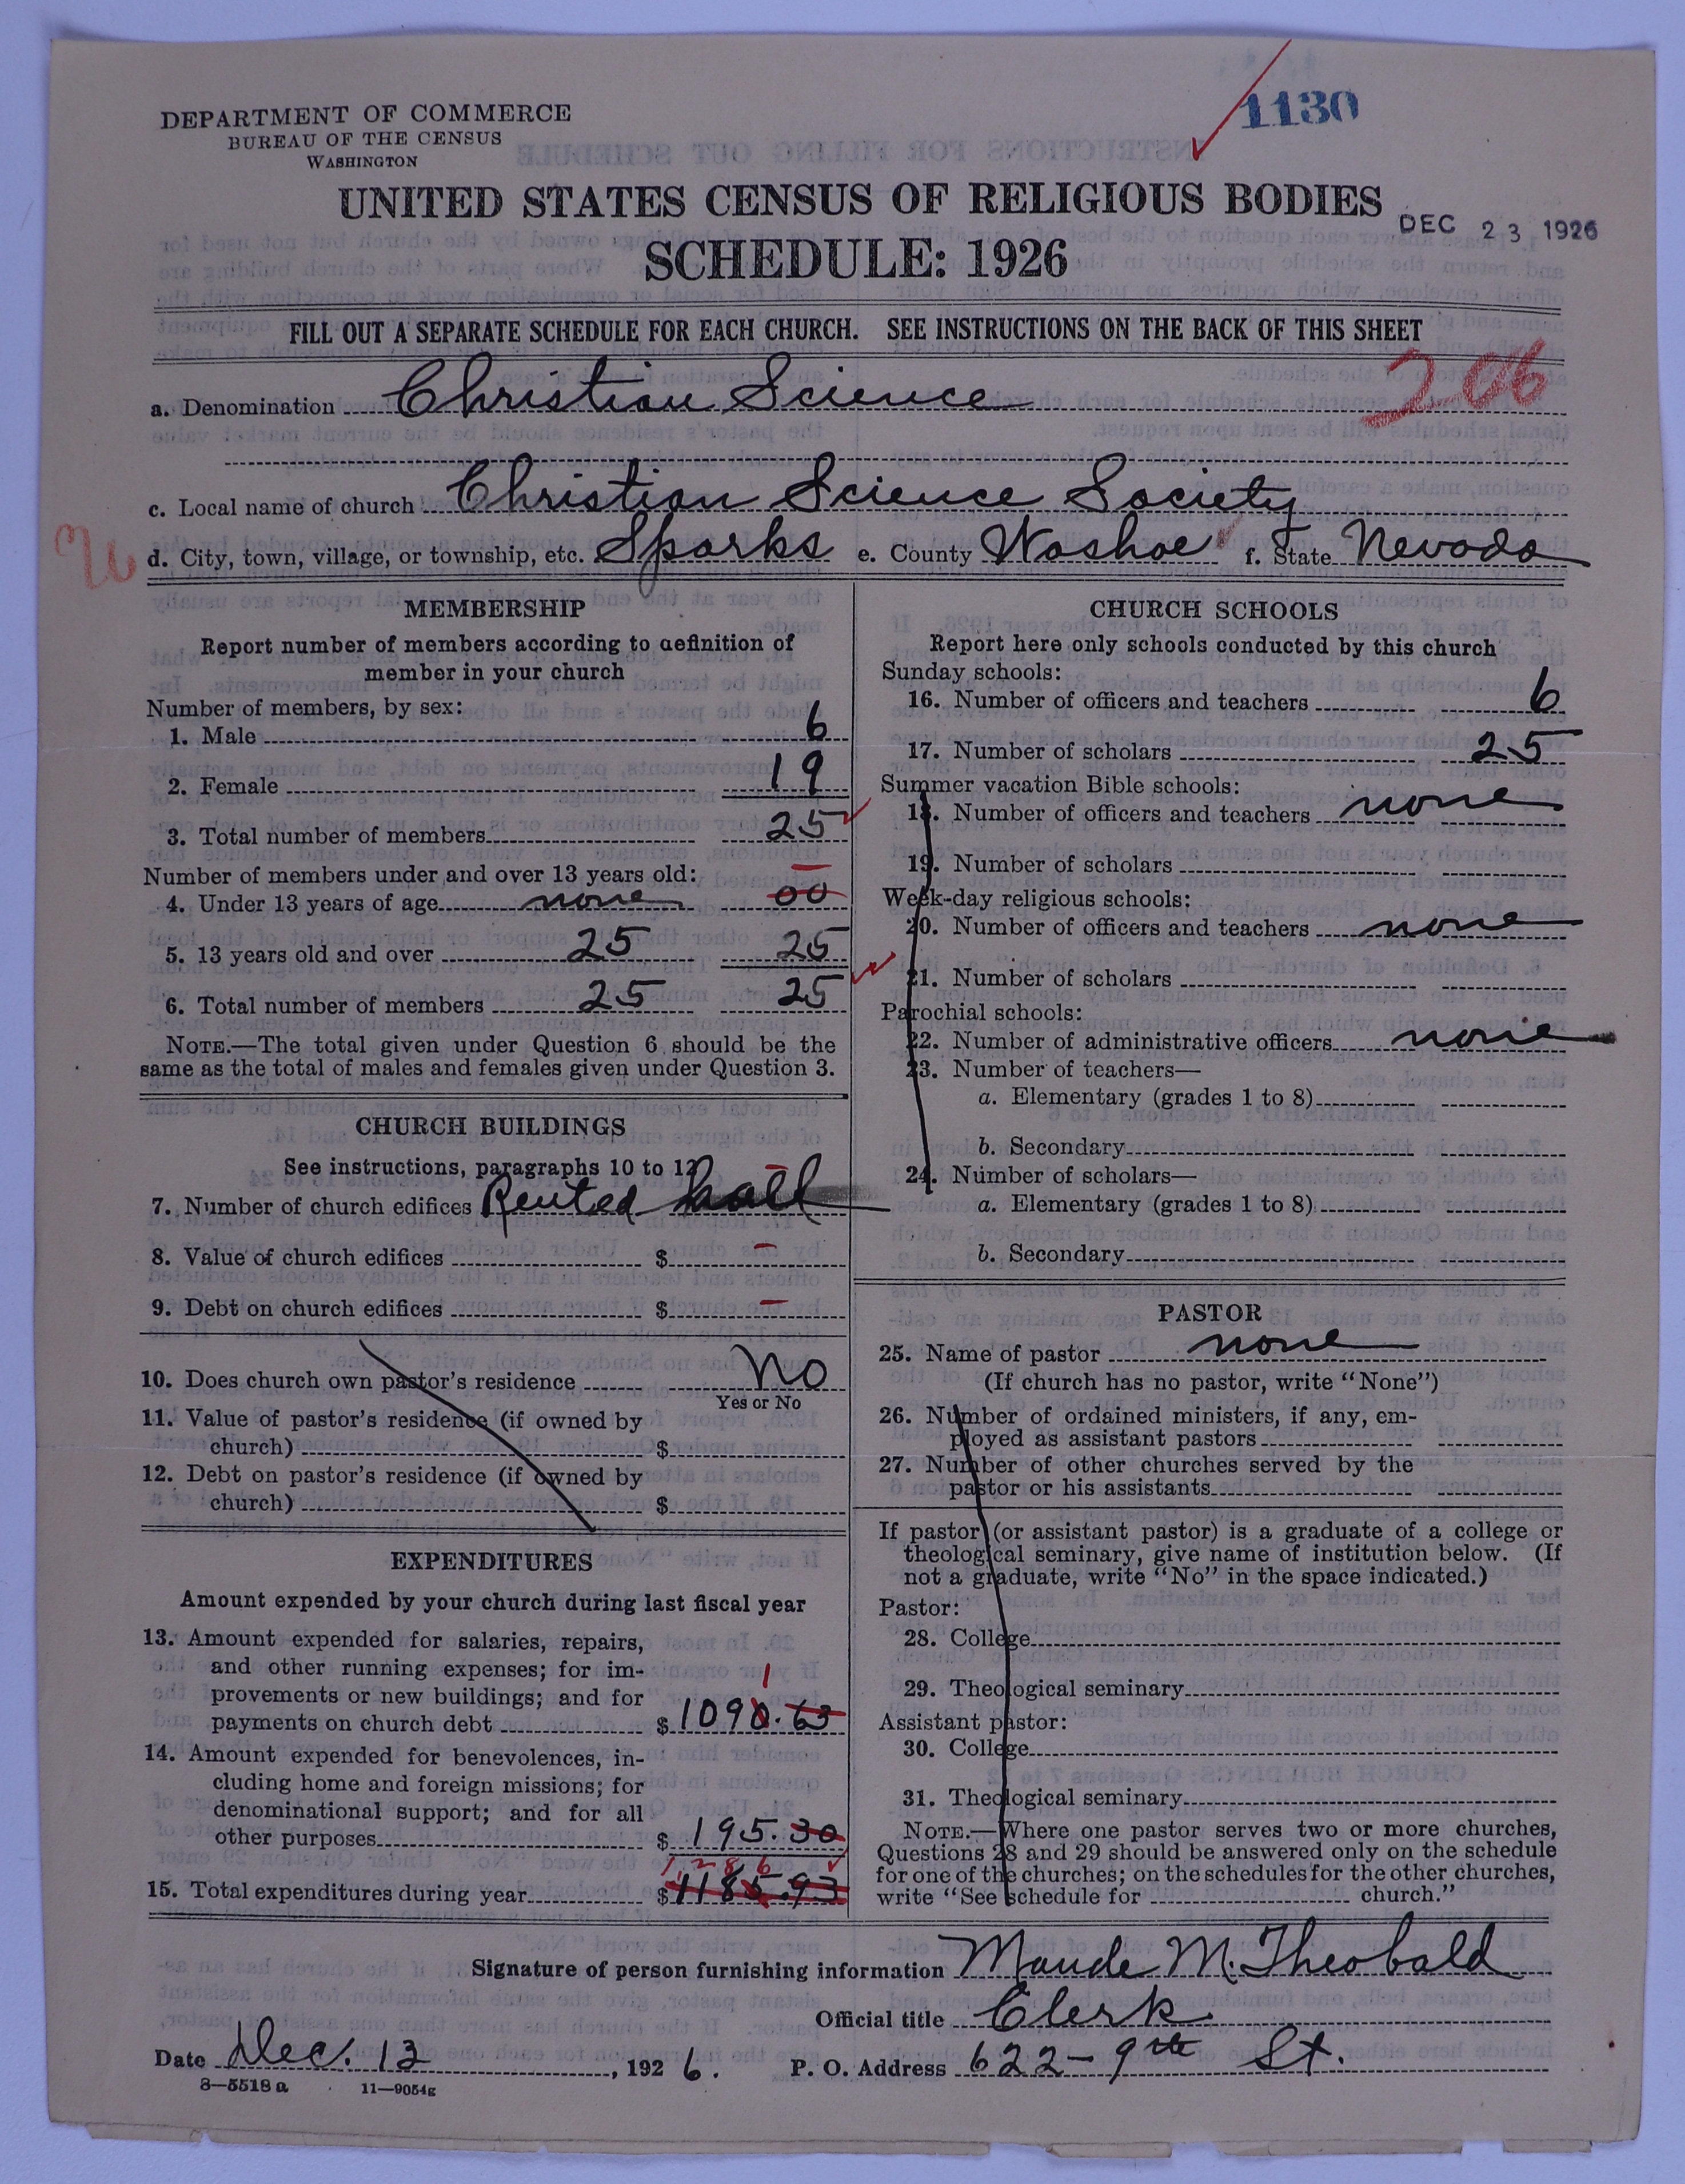 1130
DEPARTMENT OF COMMERCE
BUREAU OF THE CENSUS
WASHINGTON
UNITED STATES CENSUS OF RELIGIOUS BODIES
DEC 23 1926
SCHEDULE: 1926
FILL OUT A SEPARATE SCHEDULE FOR EACH CHURCH. SEE INSTRUCTIONS ON THE BACK OF THIS SHEET
206
a. Denomination Christian Science
c. Local name of church Christian Science Society
d. City, town, village, or township, etc. Sparks e. County Washoe f. State Nevada
MEMBERSHIP
Report number of members according to definition of
member in your church
Number of members, by sex:
1. Male 6
2. Female 19
3. Total number of members 25
Number of members under and over 13 years old:
4. Under 13 years of age none 00
5. 13 years old and over 25 25
6. Total number of members 25 25
NOTE.—The total given under Question 6 should be the
same as the total of males and females given under Question 3.
CHURCH BUILDINGS
See instructions, paragraphs 10 to 12
7. Number of church edifices Rented hall
8. Value of church edifices $ –
9. Debt on church edifices $ –
10. Does church own pastor's residence No
Yes or No
11. Value of pastor's residence (if owned by
church) $
12. Debt on pastor's residence (if owned by
church) $
EXPENDITURES
Amount expended by your church during last fiscal year
13. Amount expended for salaries, repairs,
and other running expenses; for im-
provements or new buildings; and for
1
payments on church debt $ 1090.63
14. Amount expended for benevolences, in-
cluding home and foreign missions; for
denominational support; and for all
other purposes $ 195.30
1286
15. Total expenditures during year $ 1185.93
CHURCH SCHOOLS
Report here only schools conducted by this church
Sunday schools:
16. Number of officers and teachers 6
17. Number of scholars 25
Summer vacation Bible schools:
18. Number of officers and teachers none
19. Number of scholars
Week-day religious schools:
20. Number of officers and teachers none
21. Number of scholars
Parochial schools:
22. Number of administrative officers none
23. Number of teachers—
a. Elementary (grades 1 to 8)
b. Secondary
24. Number of scholars—
a. Elementary (grades 1 to 8)
b. Secondary
PASTOR
25. Name of pastor none
(If church has no pastor, write "None")
26. Number of ordained ministers, if any, em-
ployed as assistant pastors
27. Number of other churches served by the
pastor or his assistants
If pastor (or assistant pastor) is a graduate of a college or
theological seminary, give name of institution below. (If
not a graduate, write "No" in the space indicated.)
Pastor:
28. College
29. Theological seminary
Assistant pastor:
30. College
31. Theological seminary
NOTE.—Where one pastor serves two or more churches,
Questions 28 and 29 should be answered only on the schedule
for one of the churches; on the schedules for the other churches,
write "See schedule for church."
Signature of person furnishing information Maude M. Theobald
Official title Clerk
Date Dec. 13, 1926. P. O. Address 622–9th St.
8—5518a 11—9054g